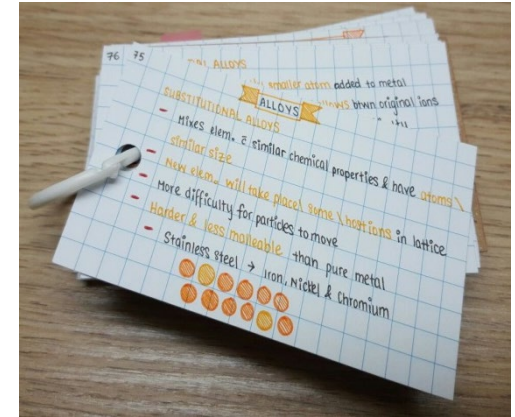 76 75
ALLOYS
smaller atom added to metal
btwn original ions
ALLOYS
SUBSTITUTIONAL ALLOYS
- Mixes elem. c̄ similar chemical properties & have atoms \
similar size
- New elem. will take place\ some \ host ions in lattice
- More difficulty for particles to move
- Harder & less malleable than pure metal
- Stainless steel → Iron, Nickel & Chromium